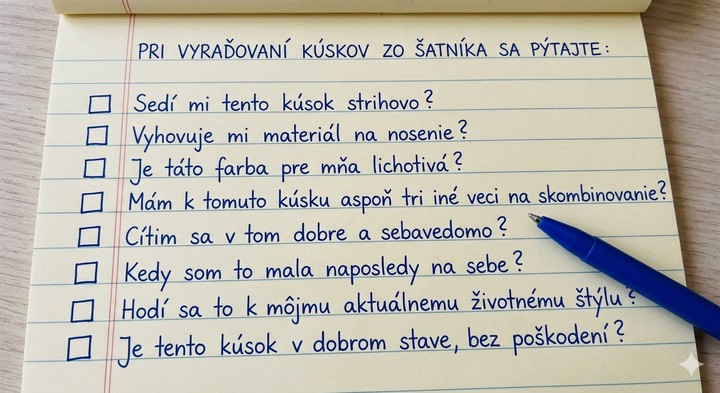 PRI VYRAĎOVANÍ KÚSKOV ZO ŠATNÍKA SA PÝTAJTE:
Sedí mi tento kúsok strihovo?
Vyhovuje mi materiál na nosenie?
Je táto farba pre mňa lichotivá?
Mám k tomuto kúsku aspoň tri iné veci na skombinovanie?
Cítim sa v tom dobre a sebavedomo?
Kedy som to mala naposledy na sebe?
Hodí sa to k môjmu aktuálnemu životnému štýlu?
Je tento kúsok v dobrom stave, bez poškodení?